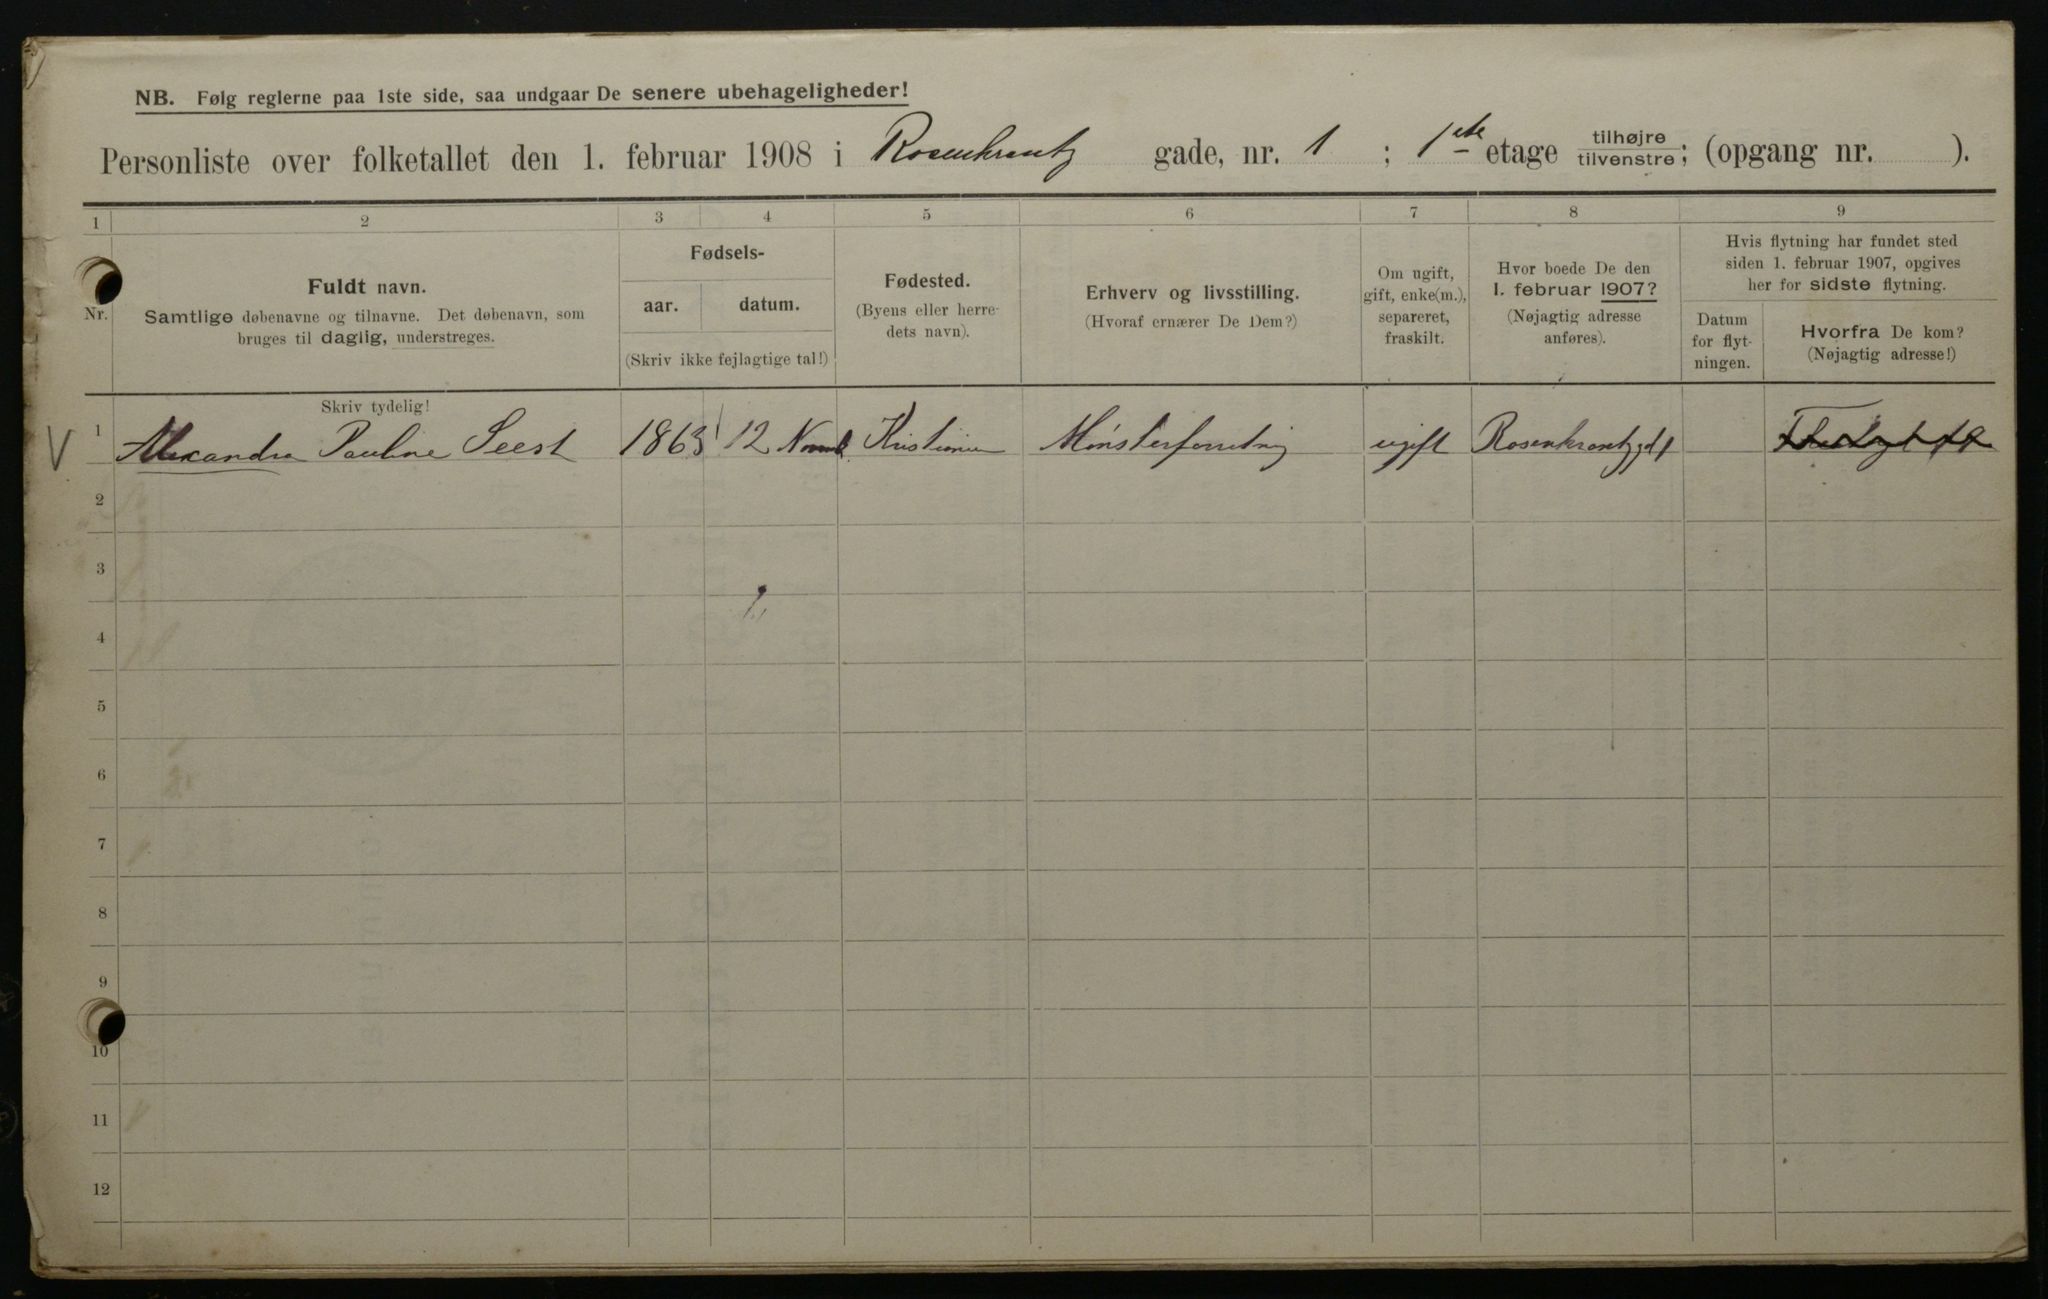 NB. Følg reglerne paa 1ste side, saa undgaar De senere ubehageligheder!
Personliste over folketallet den 1. februar 1908 i Rosenkrantz gade, nr. 1 ; 1ste etage tilhøjre tilvenstre; (opgang nr. ).
1 2 3 4 5 6 7 8 9
Nr.
Fuldt navn.
Samtlige døbenavne og tilnavne. Det døbenavn, som
bruges til daglig, understreges.
Skriv tydelig!
Fødsels-
aar. datum.
(Skriv ikke fejlagtige tal!)
Fødested.
(Byens eller herre-
dets navn).
Erhverv og livsstilling.
(Hvoraf ernærer De Dem?)
Om ugift,
gift, enke(m.),
separeret,
fraskilt.
Hvor boede De den
1. februar 1907?
(Nøjagtig adresse
anføres).
Hvis flytning har fundet sted
siden 1. februar 1907, opgives
her for sidste flytning.
Datum
for flyt-
ningen.
Hvorfra De kom?
(Nøjagtig adresse!)
V 1 Alexandra Pauline Seest 1863 12 Novmb. Kristiania Mønsterforretning ugift Rosenkrantzgd 1
2
3
4
5
6
7
8
9
10
11
12